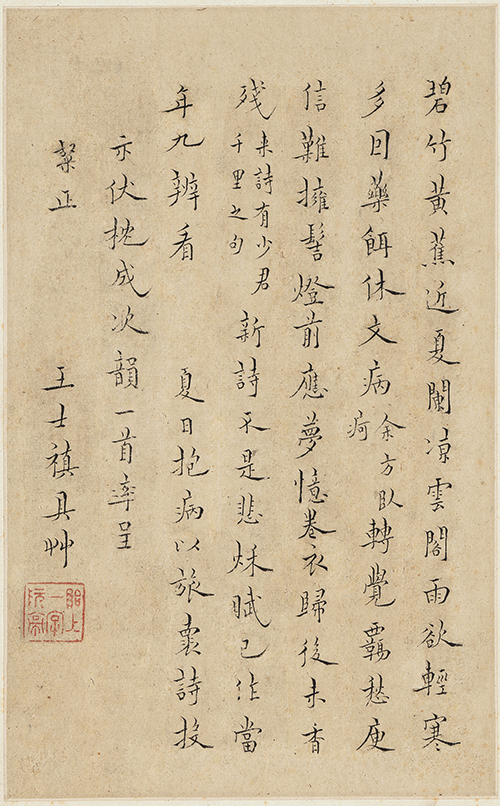 碧竹黃蕉近夏闌凉雲閣雨欲輕寒
多因藥餌休文病余方臥疴轉覺羈愁庾
信難擁髻燈前應夢憶卷衣歸後未香
殘来詩有少君千里之句新詩不是悲秌賦已作當
年九辨看 夏日抱病以旅囊詩投
示伏枕成次韻一首率呈
粲正 王士禛具艸
貽上一字阮亭